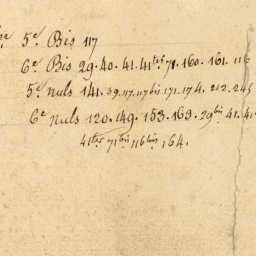 5e Bis 117
6e Bis 29. 40. 41. 41 bis 71. 160. 161. 116
5e nuls 141. 39. 117. 117 bis 171. 174. 212. 245
6e nuls 120. 149. 153. 163. 29 bis 41. 41.
41 bis 71 bis 116 bis 164.